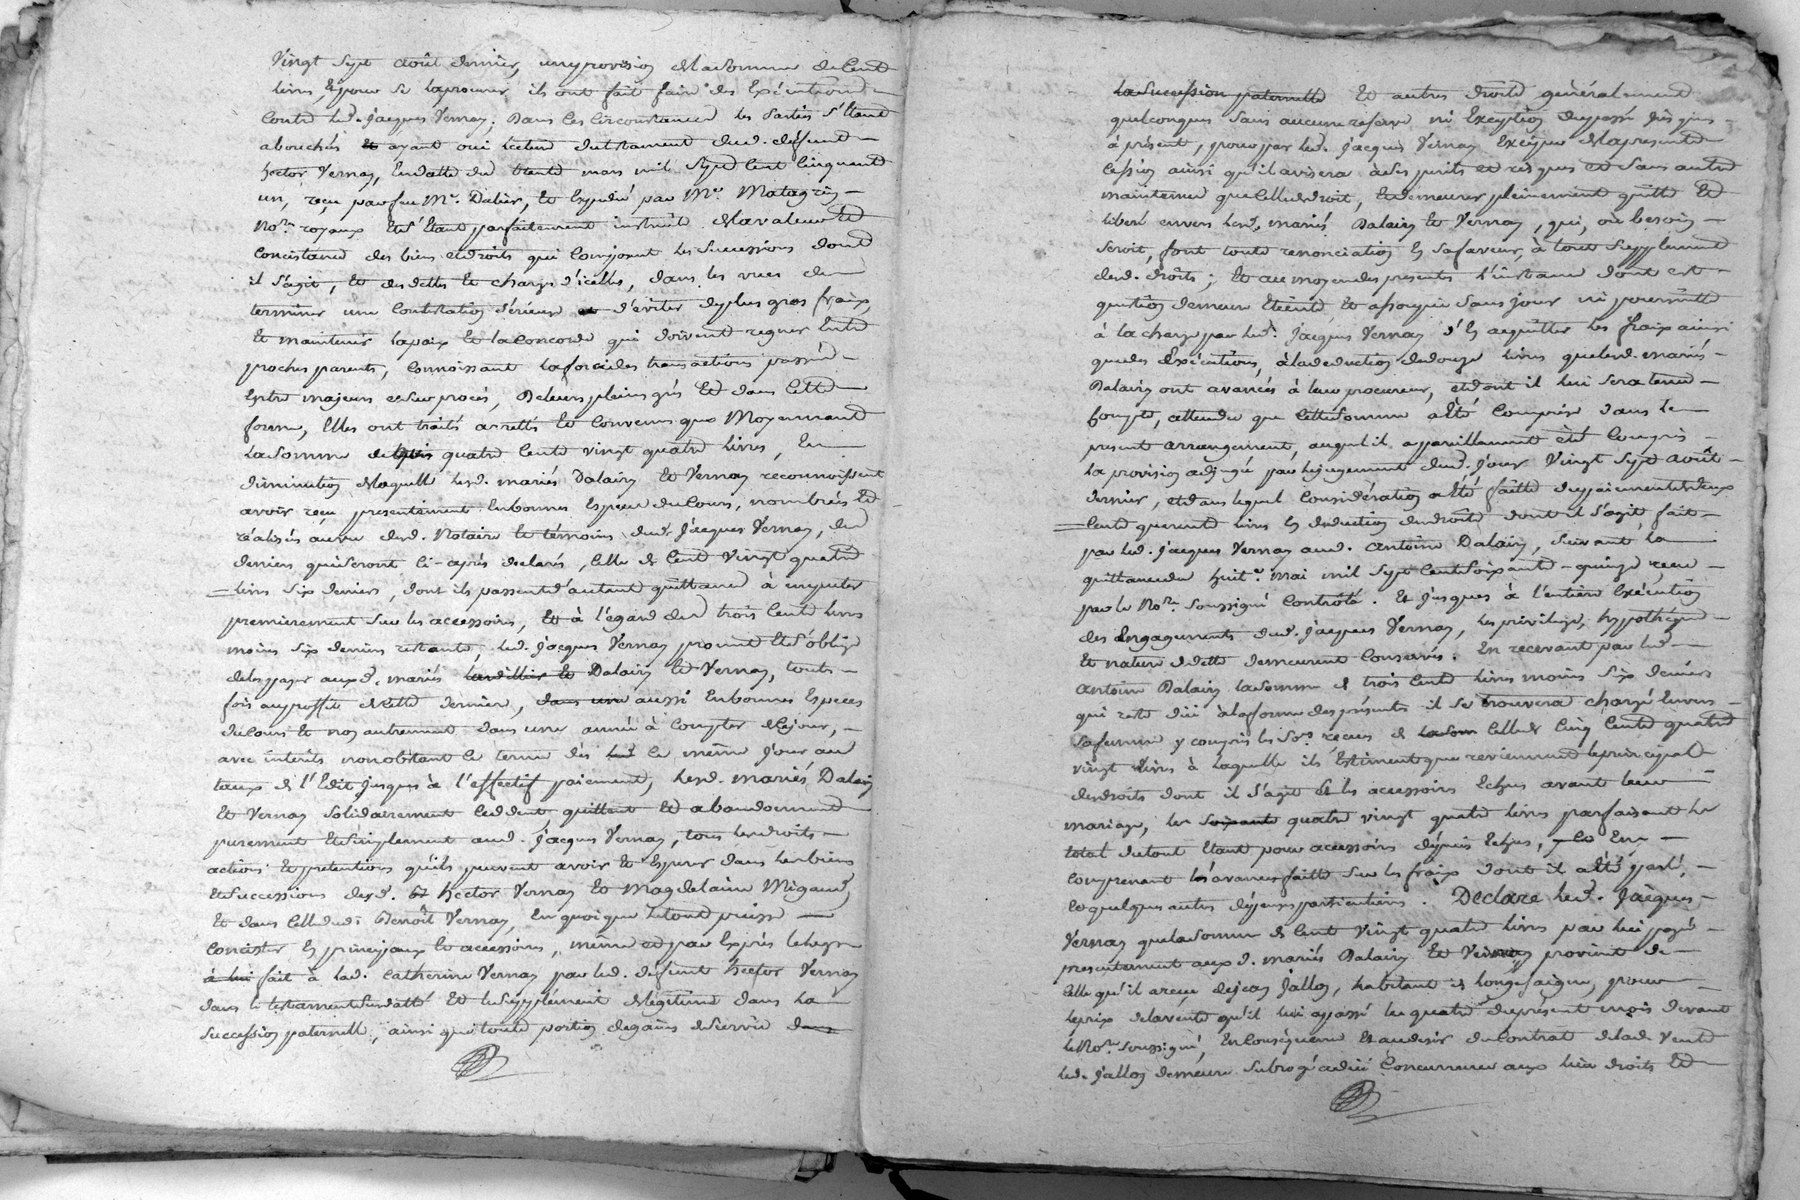 Vingt Sept août dernier, une provision de la somme de Cent
livres, Et pour se la procurer ils ont fait faire des Exécutions
Contre led. Jacques Vernay; Dans Ces Circonstances les Parties s'Etant
abouchés Et ayant oui lecture du testament dud. défunt
hector Vernay, En datte du trente mars mil Sept Cent Cinquante
un, reçu par feu Me. Dalier, Et Expedié par Me. Matagrin
Nore. royaux Et s'Etant parfaitement instruit de la valeur Et
Concistance des biens et droits qui Composent les Successions dont
il s'agit, Et des dettes Et charges d'icelles, dans les vues de
terminer une Contestation sérieuse et d'éviter de plus gros fraix,
Et maintenir la paix Et la Concorde qui doivent regner Entre
proches parents, Connoissant la force des transactions passées
Entre majeurs et sur procès, De leurs pleins grés Et dans Cette
forme, Elles ont traités arrettés Et Convenus que Moyennant
la Somme de quatre Cents vingt quatre livres, En
diminution de laquelle lesd. mariés Dalairy Et Vernay reconnoissent
avoir reçu presentement En bonnes Espèces du Cours, nombrées Et
réalisées au vu desd. Notaire Et témoins dud. Jacques Vernay, des
deniers qui Seront Ci-après declarés, Celle de Cent Vingt quatre
livres Six deniers, dont ils passent d'autant quittance à imputer
premierement Sur les accessoires, Et à l'égard des trois Cents livres
moins six deniers restants, led. Jacques Vernay promet Et s'oblige
de les payer auxd. mariés Dalairy Et Vernay, toute
fois au proffit de Cette derniere, dans une aussi En bonnes Especes
du Cours Et non autrement dans une année à Compter de Ce jour,
avec intérêts nonobstant le terme dès led le même jour au
taux de l'Edit jusques à l'effectif paiement, lesd. mariés Dalairy
Et Vernay Solidairement Ceddent, quittent Et abandonnent
purement Et Simplement aud. Jacques Vernay, tous les droits
actions Et prétentions qu'ils peuvent avoir Et Esperer dans les biens
Et Successions desd. Et hector Vernay Et Magdelaine Migaud,
Et dans Celle dud. Benoît Vernay, En quoi que le tout puisse
Concister En principaux Et accessoires, même et par Exprès le legs
à lui fait à lad. Catherine Vernay par led. défunt hector Vernay
dans le testament Susdatté Et le Supplément de légitime dans la
Succession paternelle, ainsi que toute portion de gains de Survie dans
la Succession paternelle Et autres droits généralement
quelconques Sans aucune réserve ni Exception du passé jusques
à présent, pour par led. Jacques Vernay Exciper de la présente
Cession ainsi qu'il avisera à Ses périls et risques et Sans autre
maintenue que Celle de droit, Et demeurer pleinement quitte Et
libéré envers lesd. mariés Dalairy Et Vernay, qui, où besoin
Seroit, font toute renonciation En Sa faveur, à tout Supplément
desd. droits; Et au moyen des présentes l'instance dont est
question demeure Eteinte, Et assoupie Sans jour ni poursuitte
à la charge par led. Jacques Vernay d'En acquitter les fraix ainsi
que des Exécutions, à la déduction de douze livres que lesd. mariés
Dalairy ont avancés à leur procureur, et dont il lui Sera tenu
Compte, attendu que Cette Somme a Eté Comprise dans le
present arrangement, auquel il a pareillement èté Compris
la provision adjugée par le jugement dud. jour Vingt Sept août
dernier, et dans lequel Considération a Eté faitte du paiement de deux
Cents quarante livres En déduction des droits dont il s'agit, fait
par led. Jacques Vernay aud. Antoine Dalairy, Suivant la
quittance du huite. mai mil Sept Cent Soixante-quinze reçue
par le Nore. Soussigné Controlé. Et jusques à l'entière Exécution
des Engagements dud. Jacques Vernay, les privilege, hypothéque
Et nature de dette demeurent Conservés. En recevant par led.
Antoine Dalairy la Somme de trois Cents livres moins Six deniers
qui reste düe à la forme des présentes il Se trouvera chargé Envers
Sa femme y compris les Soes. recues de la Som Celle de Cinq Cents quatre
vingt livres à laquelle ils Estiment que reviennent le principal
des droits dont il s'agit Et les accessoires Echus avant leur
mariage, les Soixante quatre vingt quatre livres parfaisant le
total du tout Etant pour accessoires dépuis Echus, y En
Comprenant les avances faittes Sur les fraix dont il a Eté parlé,
Et quelques autres dépenses particulieres. Déclare led. Jacques
Vernay que la Somme de Cent Vingt quatre livres par lui payée
presentement auxd. mariés Dalairy Et Vernay provient de
Celle qu'il a reçue de Jean Jallon, habitant de Longessaigne, pour
le prix de la vente qu'il lui a passé le quatre du présent mois devant
le Nore. Soussigné, En Conséquence Et au desir du Contrat de lad. Vente
led. Jallon demeure Subrogé à düe Concurrence aux lieu droits Et